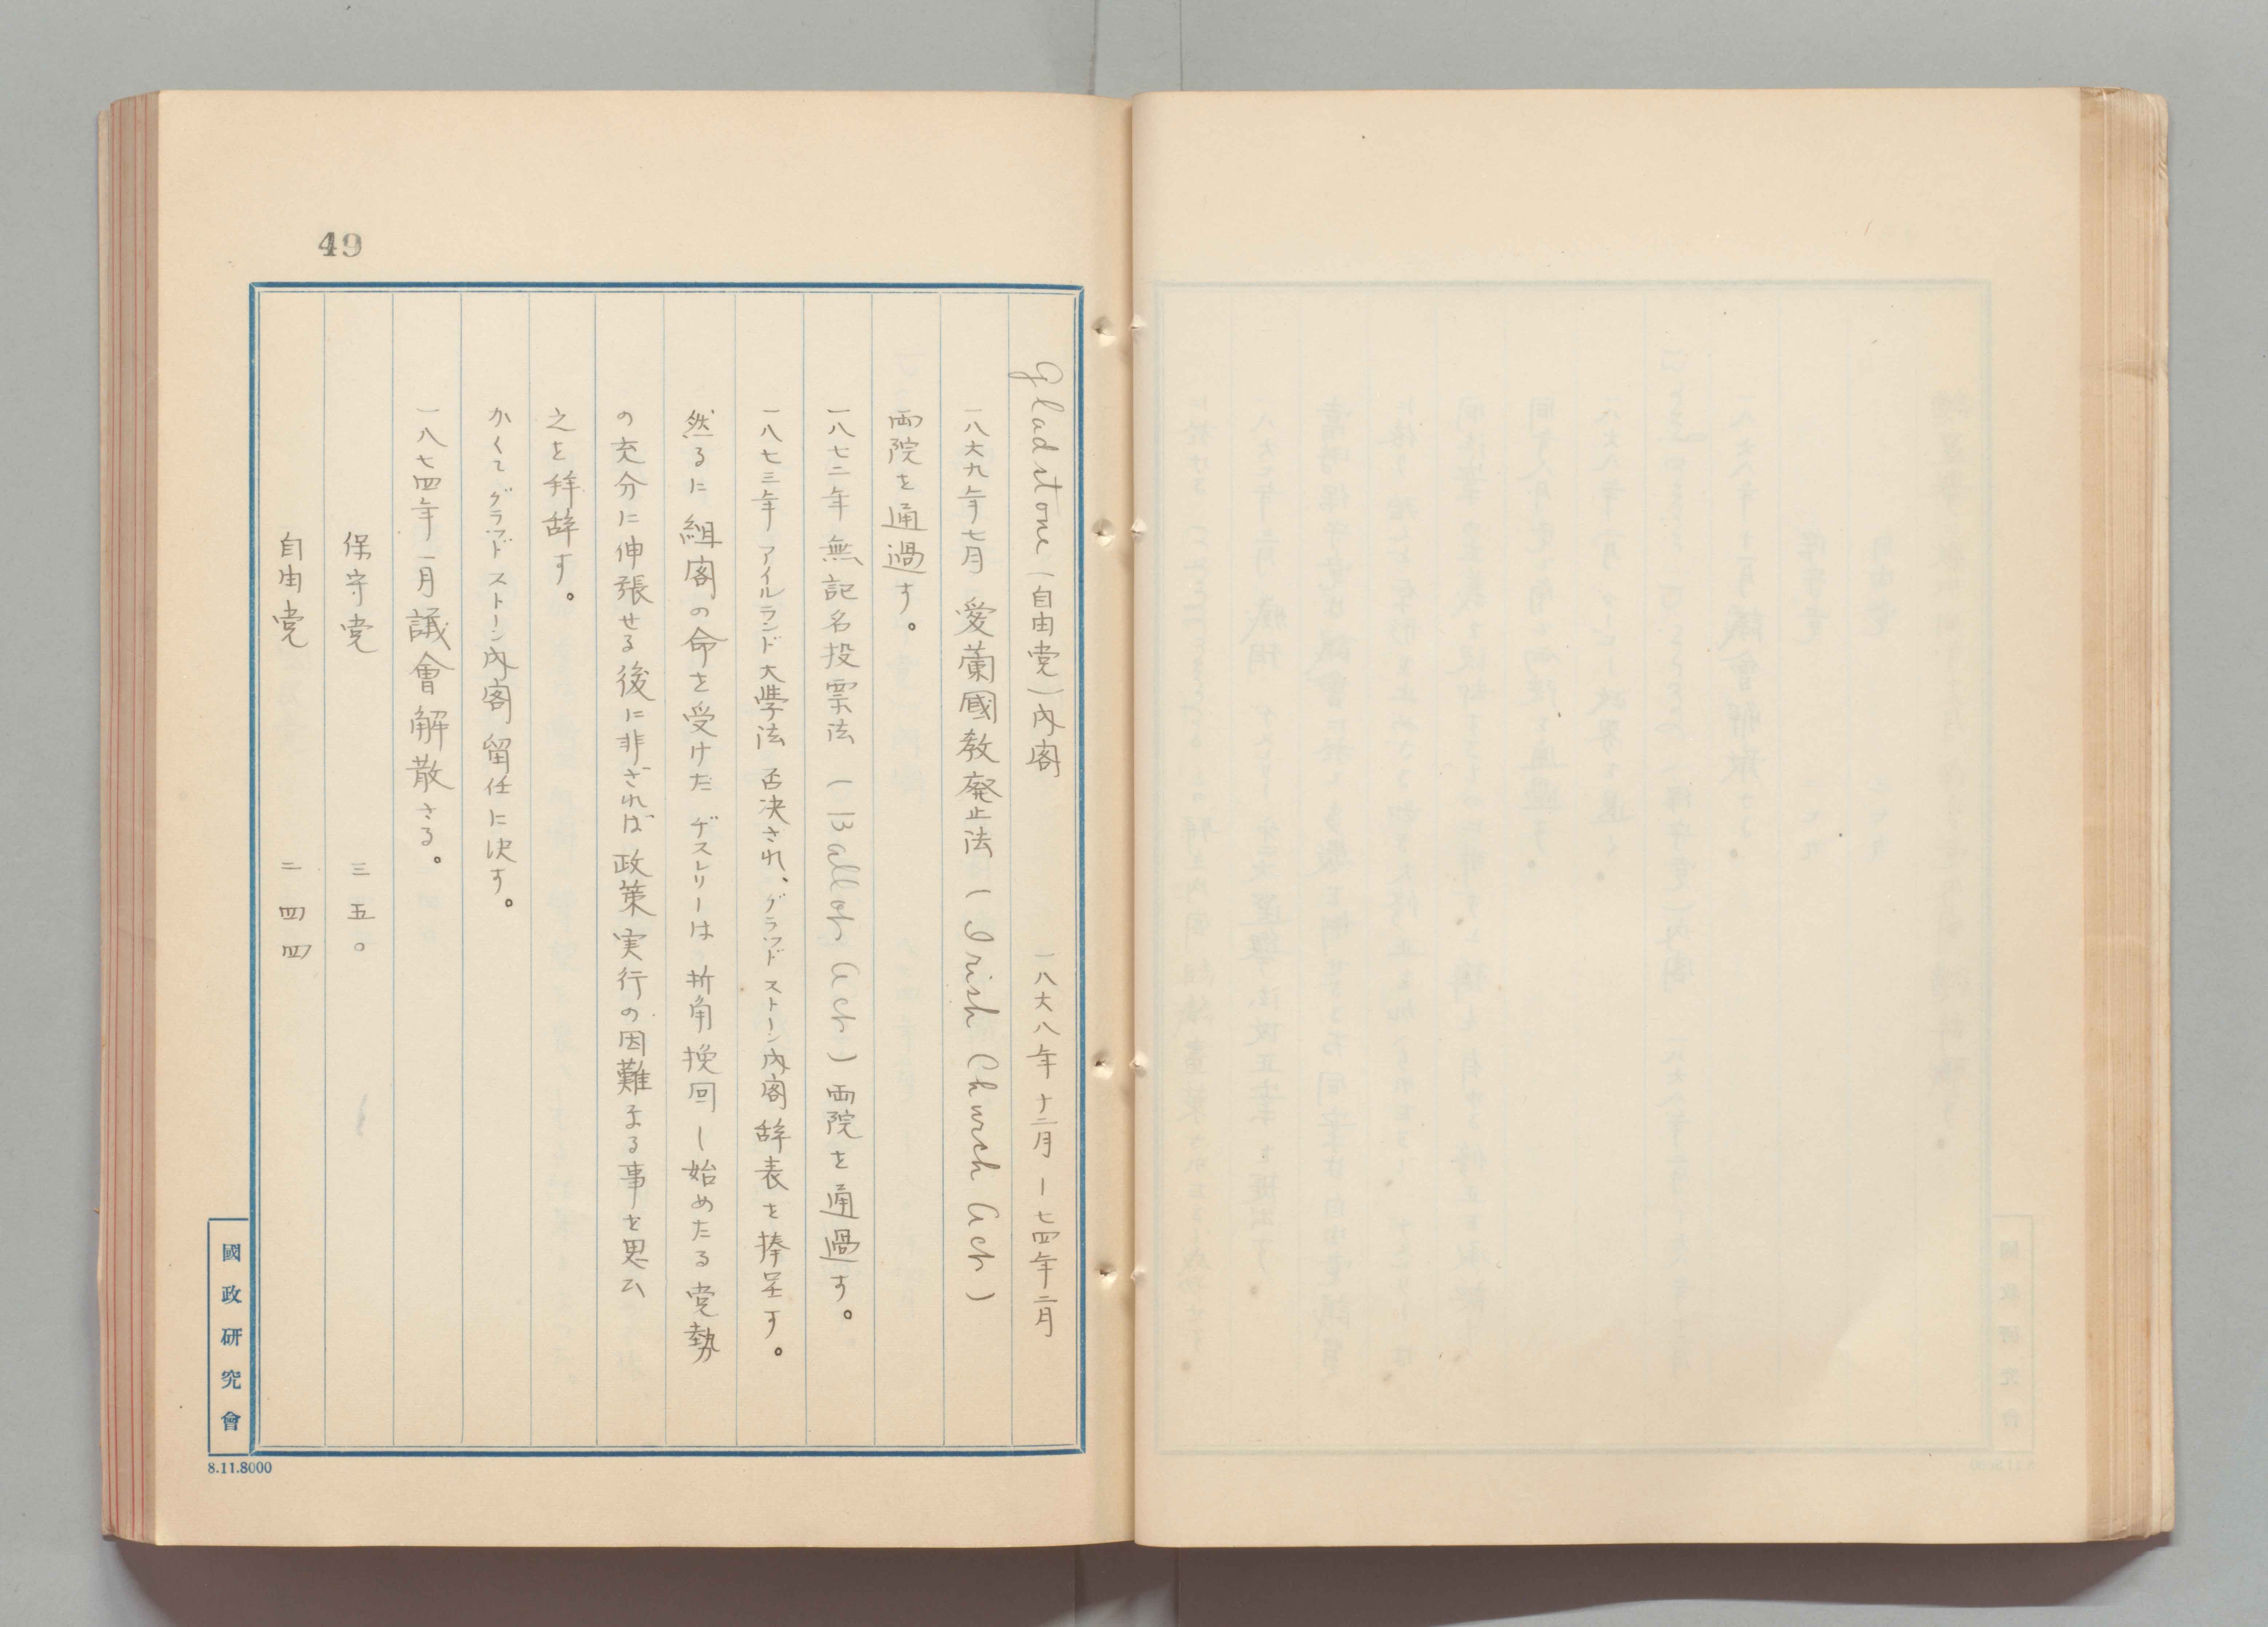 49
Gladstone(自由党)内閣　一八六八年十二月ー七四年二月
一八六九年七月　愛蘭國教廃止法(Irish Church Act)
両院を通過す。
一八七二年無記名投票法(Ballot Act)両院を通過す。
一八七三年アイルランド大學法否決され、グラッドストーン内閣辞表を捧呈す。
然るに組閣の命を受けたヂスレリーは折角挽回し始めたる党勢
の充分に伸張せる後に非ざれば政策実行の困難なる事を思ひ
之を拝辞す。
かくてグラッドストーン内閣留任に決す。
一八七四年一月議會解散さる。
保守党　三五〇
自由党　二四四
國政研究會
8.11.8000